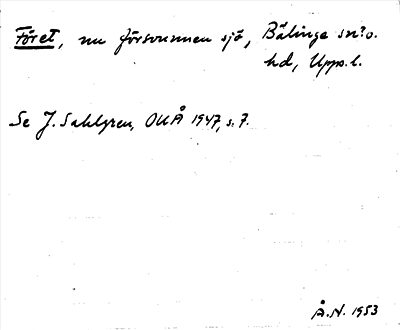 Föret, nu försvunnen sjö, Bälinge sn o.
hd, Upps. l.
Se J. Sahlgren, OUÅ 1947, s. 7.
Å.N. 1953